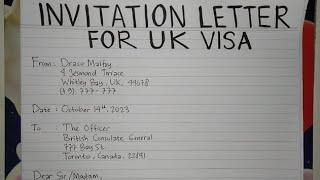 INVITATION LETTER
FOR UK VISA
From: Draco Malfoy
8 Jesmond Terrace
Whitley Bay, UK, 44678
(+9). 777-777
Date: October 14th, 2023
To: The Officer
British Consulate General
777 Bay St.
Toronto, Canada, 22891
Dear Sir/Madam,